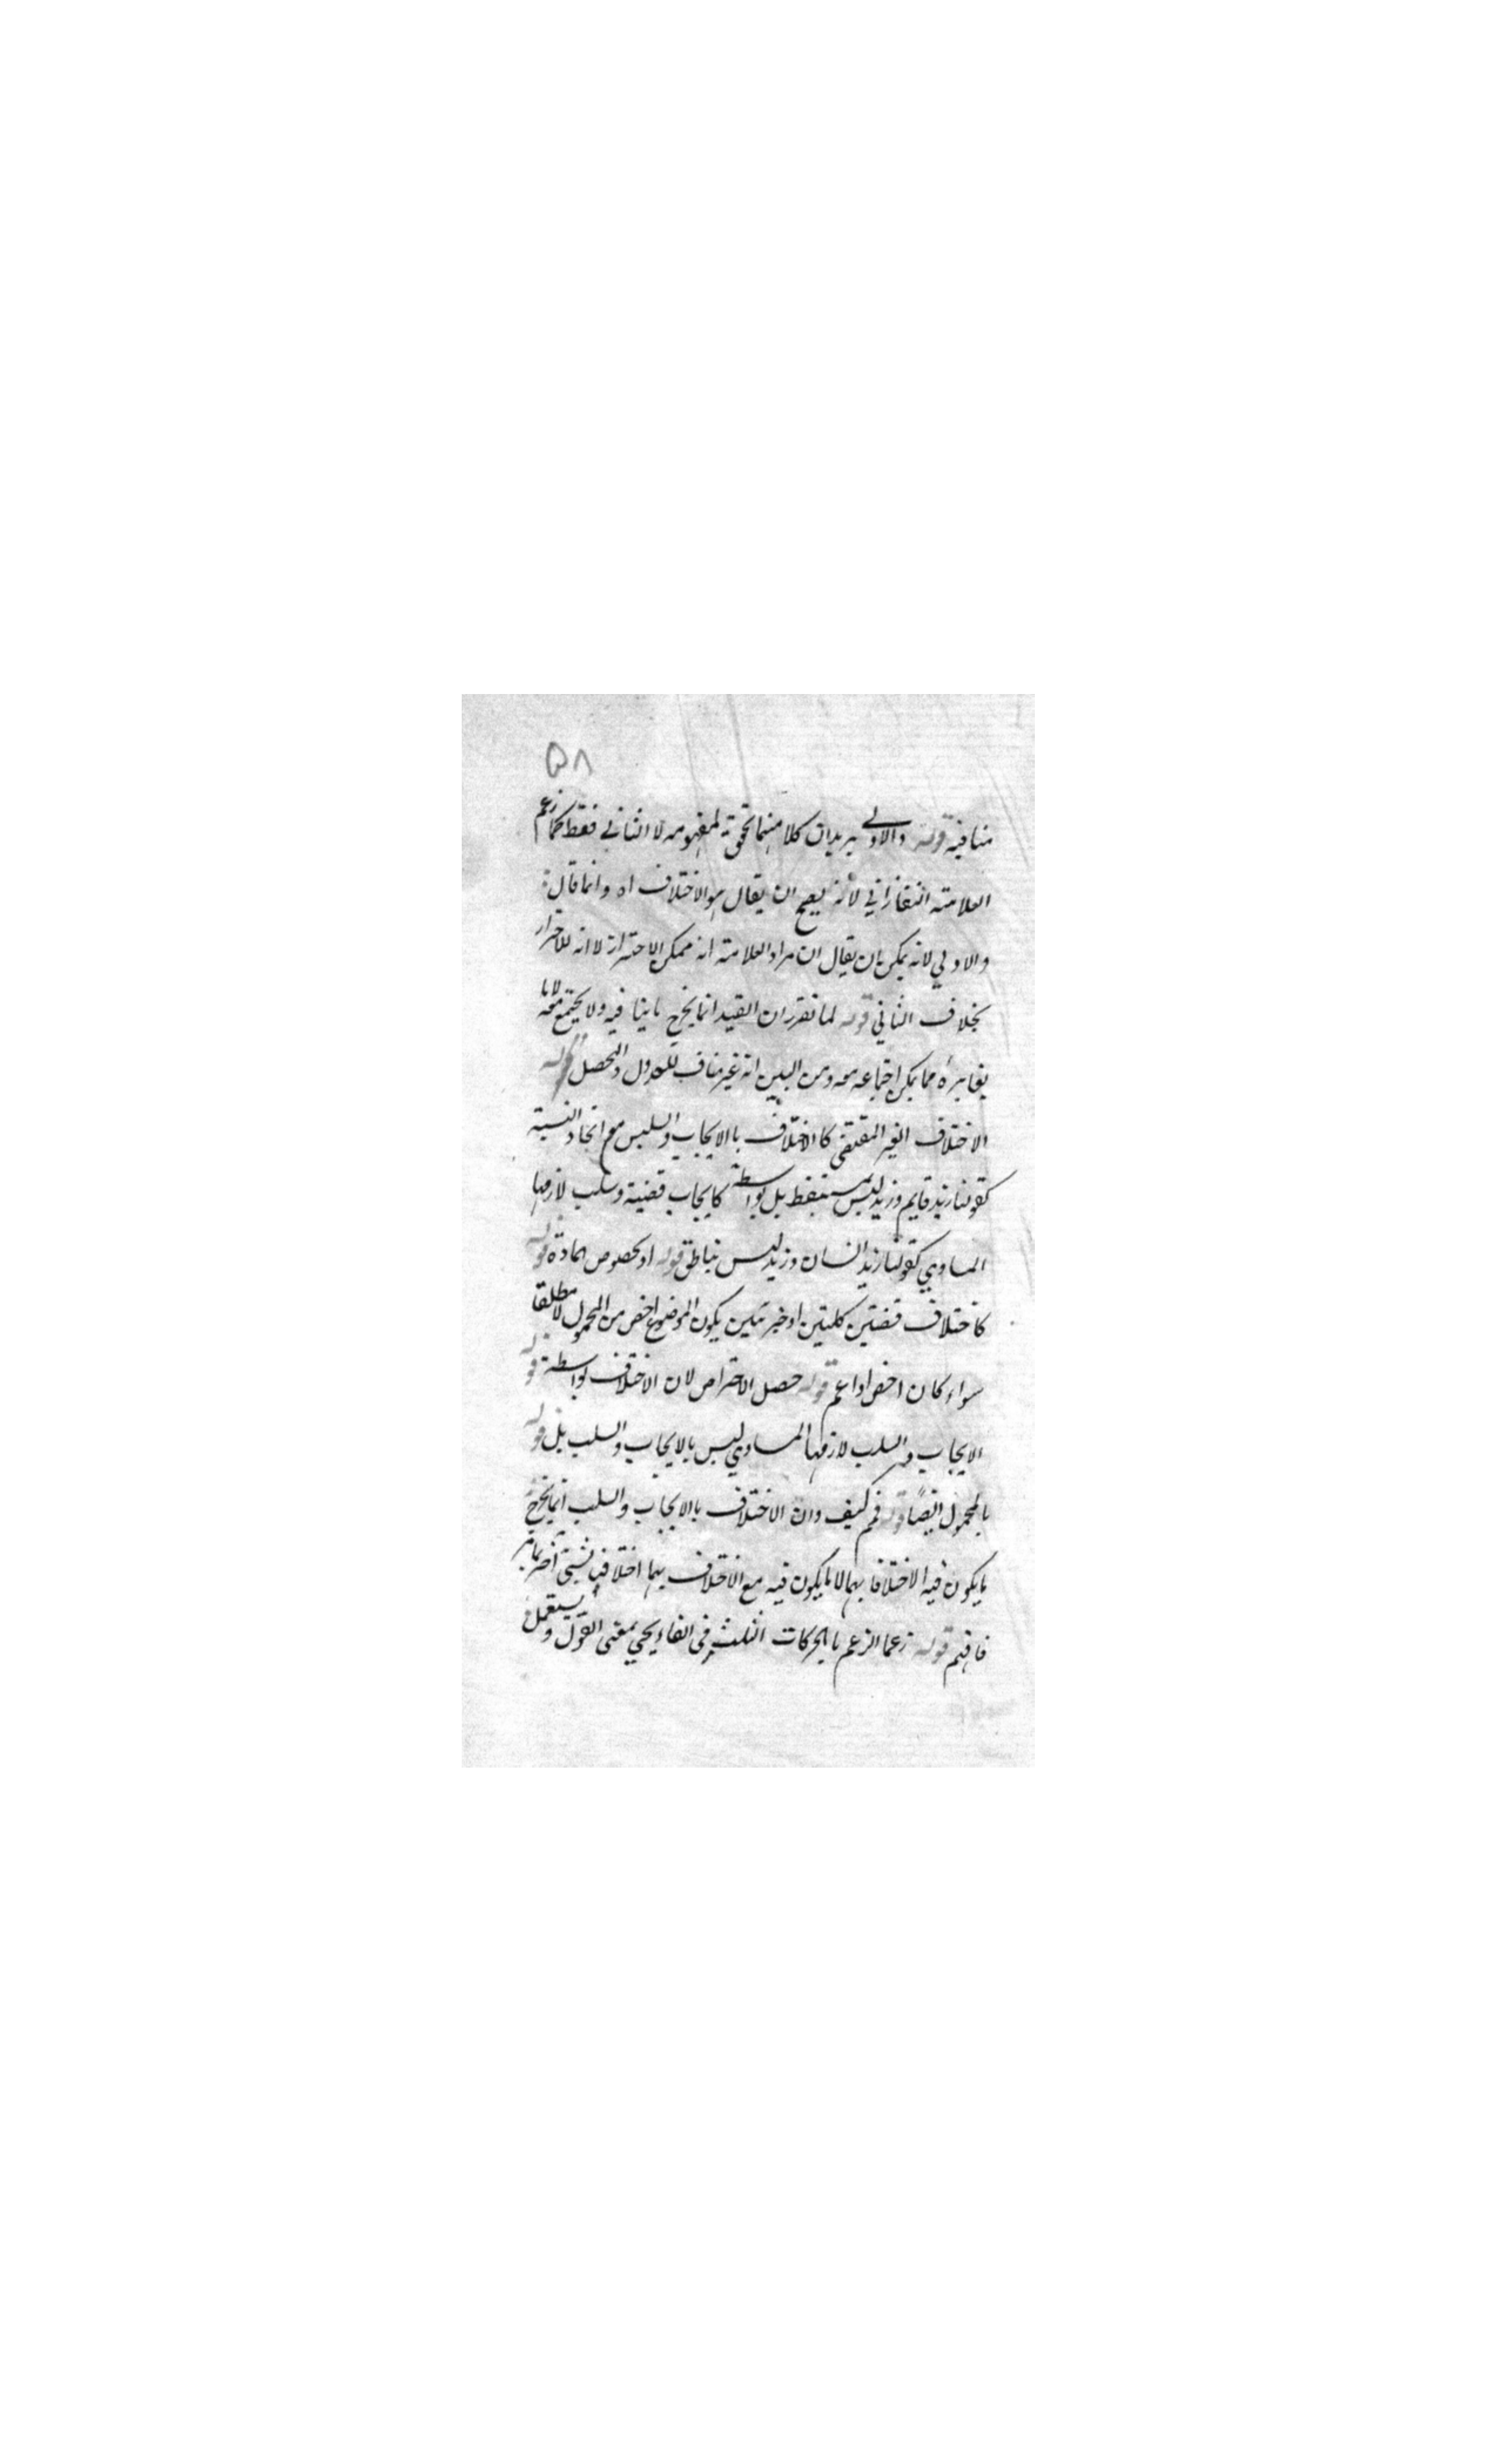 ٥٨
منافيه قوله والاولى يريد ان كلا منهما تحقق لمفهومه لا الثاني فقط كما زعم
العلامته التفتازاني لانه يصح ان يقال هو الاختلاف اه وانما قال
والاولي لانه يمكن ان يقال ان مراد العلامته انه ممكن الاحتراز لا انه للاحتراز
بخلاف الثاني قوله لما تقرر ان القيد انما يخرج ما ينافيه ولا يجتمع معه لا ما
يغايره مما يمكن اجتماعه معه ومن البين انه غير مناف للعدول والتحصل قوله
الاختلاف الغير المقتضى كالاختلاف بالايجاب والسلب مع اتحاد النسبة
كقولنا زيد قايم وزيد ليس بمستيقظ بل بواسطة كايجاب قضية وسلب لازمها
المساوي كقولنا زيد انسان وزيد ليس بناطق قوله او بخصوص المادة قوله
كاختلاف قضيتين كليتين او جزئيتين يكون الموضوع اخص من المحمول لا مطلقا
سواء كان اخص او اعم قوله حصل الاعتراض لان الاختلاف بواسطة قوله
الايجاب والسلب لازمها المساوي ليس بالايجاب والسلب بل قوله
بالمحمول ايضًا قوله فم كيف وان الاختلاف بالايجاب والسلب انما يخرج
ما يكون فيه الاختلاف بهما لا ما يكون فيه مع الاختلاف بهما اختلاف بشيئ آخر
فافهم قوله زعما الزعم بالحركات الثلث في الفاء يجي بمعنى القول ويستعمل